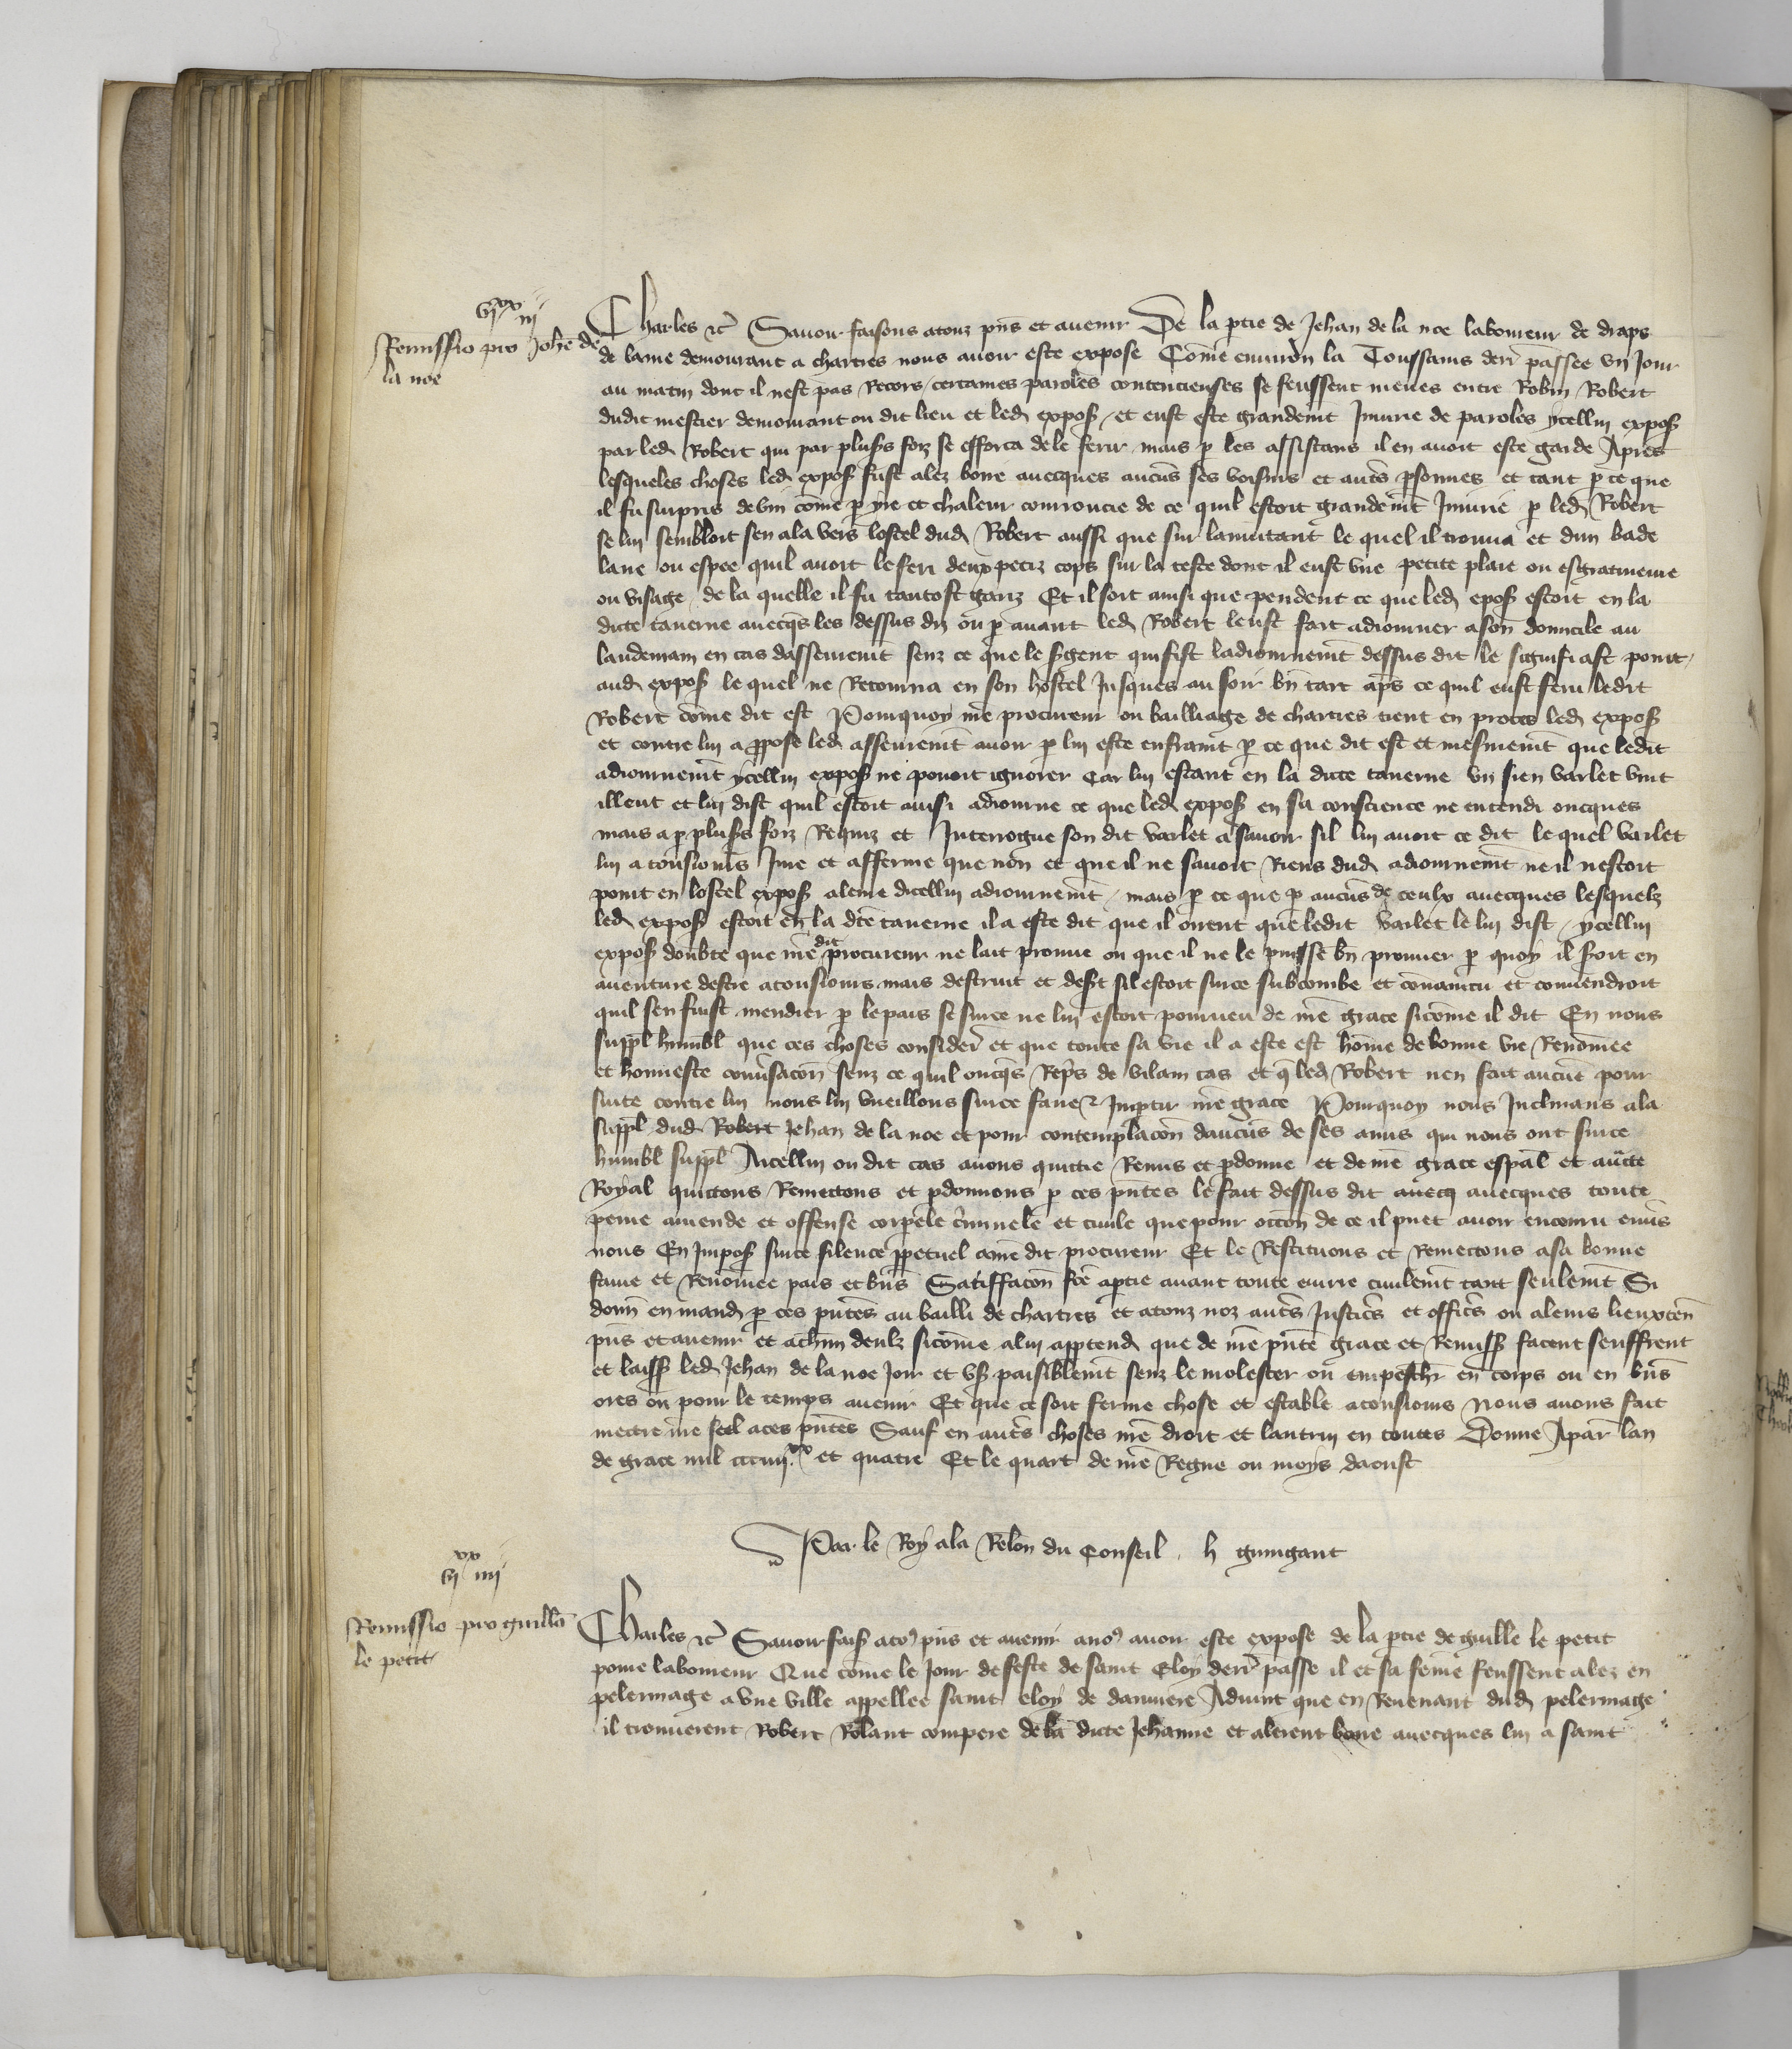 vi xx iii
Remissio pro Johe de
la noe
Charles etc Savoir faisons a touz pns et avenir De la ptie de Jehan de la noe laboureur de draps
de laine demourant a chartres nous avoir este expose Come environ la Toussains derr passee un jour
au matin dont il nest pas Recors certaines paroles contencieuses se feussent meues entre Robin Robert
dudit mestier demourant ou dit lieu et led expos et eust este grandemt Injurie de paroles ycellui expos
par led Robert qui par plus foiz se efforca de le ferir mais p les assistans il en avoit este garde Apres
lesqueles choses led expos fust alez boire avecques aucus ses voisins et autes psonnes et tant p ce que
il fu surpris de vin come p yre et chaleur courroucie de ce quil estoit grandemt Injurie p led Robert
se lui sembloit sen ala vers lostel dud Robert aussi que sur lanuitant le quel il trouva et dun bade
laire ou espee quil avoit le feri deux petiz cops sur la teste dont il eust une petite plaie ou esgratineure
ou visage de la quelle il fu tantost gariz Et il soit ainsi que pendent ce que led epos estoit en la
dicte taverne avecqs les dessus diz ou p avant led Robert leust fait adiourner a son domicile au
landemain en cas dasseurement senz ce que le sgent qui fist ladiournemt dessus dit le signifiast point
aud expos le quel ne Retourna en son hostel Jusques au soir bn tart aps ce quil eust feru ledit
Robert come dit est Pourquoy nre procureur ou bailliage de chartres tient en proces led expos
et contre lui a ppose led asseuremt avoir p lui este enfraint p ce que dit est et mesmemt que ledit
adiournemt ycellui expos ne povoit ignorer Car lui estant en la dicte taverne un sien varlet vint
illeut et lui dist quil estoit ainsi adiourne ce que led expos en sa conscience ne entendi oncques
mais a p plus foiz Requiz et Interrogue son dit varlet a savoir sil lui avoit ce dit le quel varlet
lui a tousiours Jure et afferme que non et que il ne savoit Riens dud adiournemt ne il nestoit
point en lostel expos aleure dicellui adiournemt mais p ce que p aucus de ceulx avecques lesquelz
led expos estoit en la dte taverne il a este dit que il oirent que ledit varlet le lui dist ycellui
expos doubte que nre dit procureur ne lait prouve ou que il ne le puisse bn prouver p quoy il soit en
aventure destre a tousiours mais destruit et desert sil estoit sur ce subcombe et convaincu et convendroit
quil sen fuist mendier p le pais se sur ce ne lui estoit pourveu de nre grace sicome il dit En nous
suppl humbl que ces choses consider et que toute sa vie il a este est home de bonne vie Renomee
et honneste conversacon senz ce quil oncqs Reprs de vilain cas et q led Robert nen fait aucue pour
suite contre lui nous lui vueillons sur ce faire et Impartir nre grace Pourquoy nous Inclinans a la
suppl dud Robert Jehan de la noe et pour contemplacon daucus de ses amis qui nous ont sur ce
humbl suppl Aicellui ou dit cas avons quictie Remis et pdonne et de nre grace espal et aucte
Royal quictons Remettons et pdonnons p ces pntes le fait dessus dit avecq avecques toute
peine amende et offense corpele crimnele et civile que pour occon de ce il puet avoir encouru envs
nous En Impos sur ce silence ppetuel a nre dit procureur Et le Restituons et Remectons a sa bonne
fame et Renomee pais et bns Satiffacon fce aptie avant toute euvre civilemt tant seulemt Si
donn en mand p ces pntes au bailli de chartres et a touz noz auts Justics et offics ou a leurs lieuxten
pns et avenir et a chun deulz sicome a lui apptend que de nre pnte grace et Remiss facent seuffrent
et laiss led Jehan de la noe Joir et us paisiblemt senz le molester ou empeschr en corps ou en bns
ores ou pour le temps avenir Et que ce soit ferme chose et estable a tousiours Nous avons fait
mectre nre seel a ces pntes Sauf en auts choses nre droit et lautruy en toutes Donne Apar lan
de grace mil ccciiii xx et quatre Et le quart de nre Regne ou moys daoust
Par le Roy a la Relon du Conseil h guingant
vi xx iiii
Remissio pro guillo
le petit
Charles etc Savoir fais a to pns et avenir a no avoir este expose de la ptie de guille le petit
povre laboureur Que come le jour de feste de saint Eloy derr passe il et sa feme feussent alez en
pelerinage a une ville appellee saint eloy de Advint que en Revenant dud pelerinage
il trouverent Robert Rolant compere de la dicte Jehanne et alerent boire avecques lui a saint